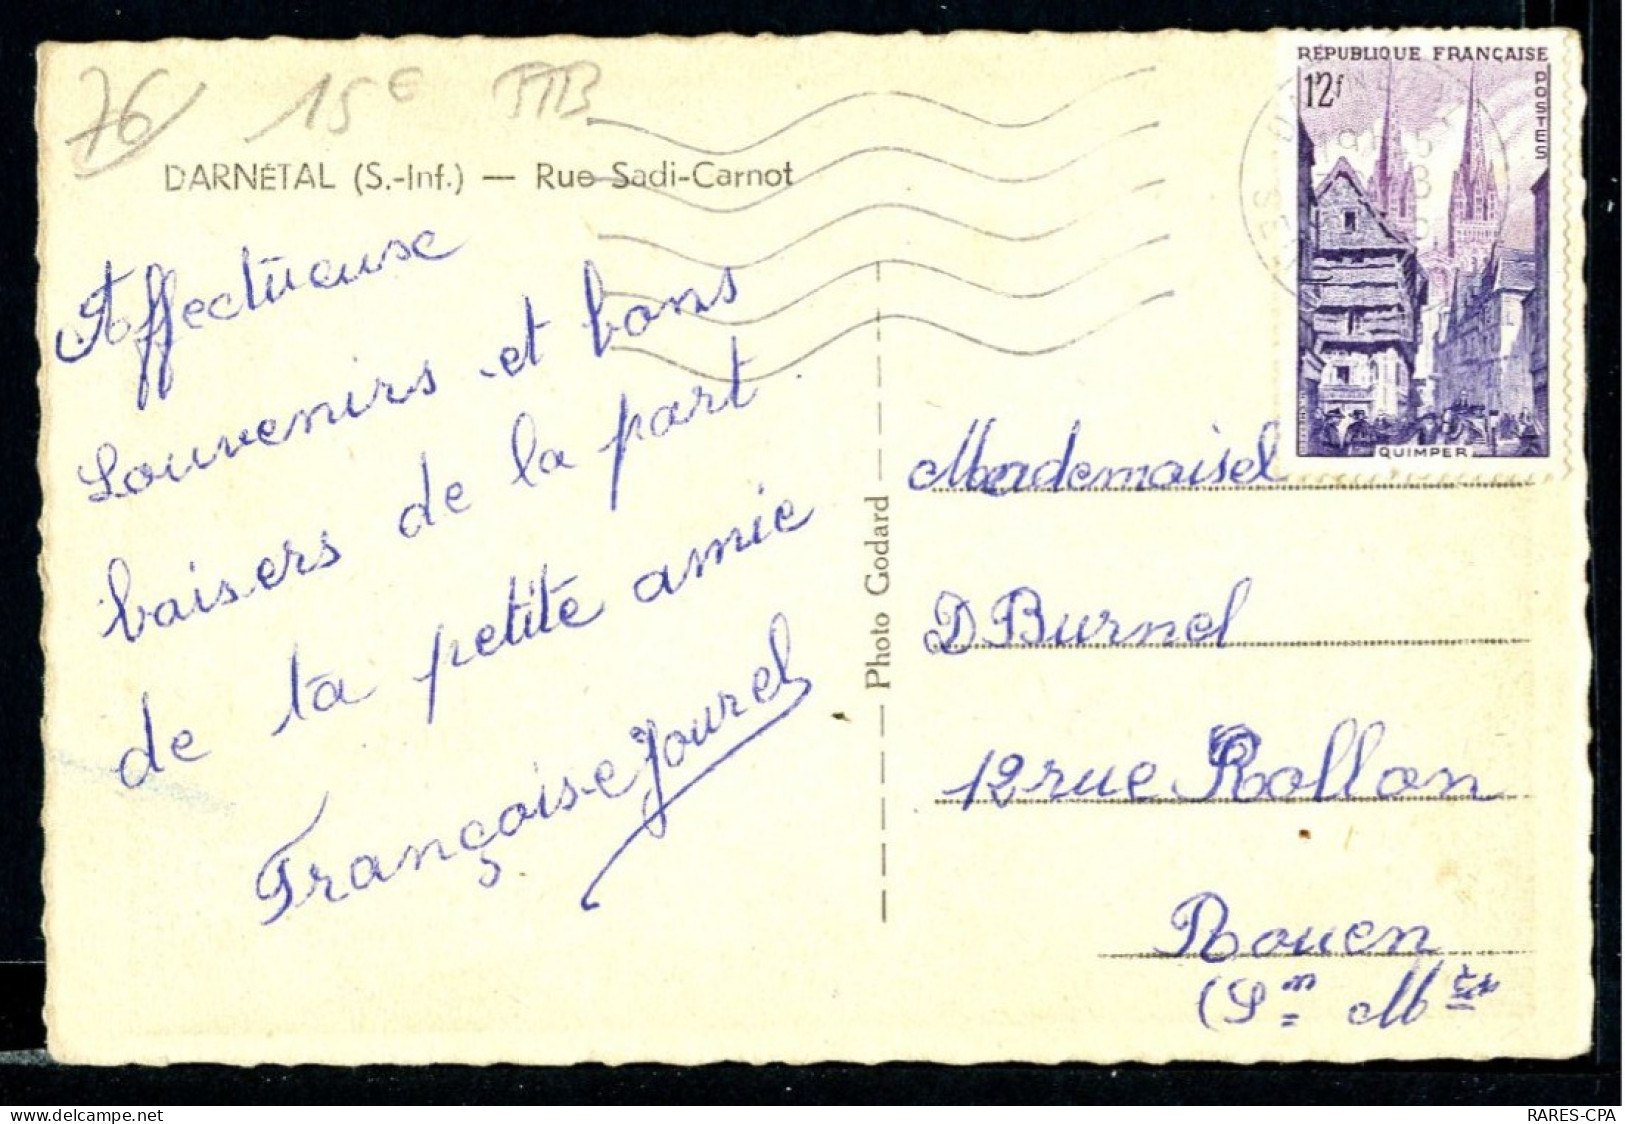 76 15€ TTB
DARNÉTAL (S.-Inf.) — Rue Sadi-Carnot
Affectueuse
Souvenirs et bons
baisers de la part
de ta petite amie
Françoise Jourel
Photo Godard
RÉPUBLIQUE FRANÇAISE
12f
POSTES
QUIMPER
Mademoisel
D Burnel
12 rue Rollon
Rouen
(Sne Mme
delcampe.net
RARES-CPA